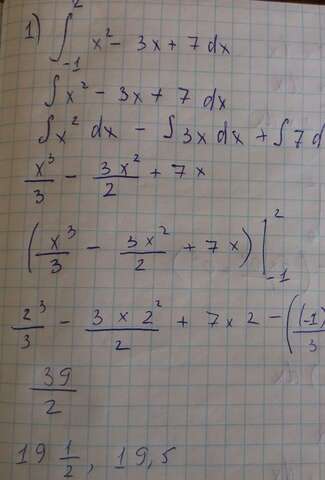 1) ∫₋₁² x² - 3x + 7 dx
∫ x² - 3x + 7 dx
∫ x² dx - ∫ 3x dx + ∫ 7 d
x³/3 - 3x²/2 + 7x
(x³/3 - 3x²/2 + 7x) |₋₁²
2³/3 - 3 × 2²/2 + 7 × 2 - ((-1)/3
39/2
19 1/2, 19,5